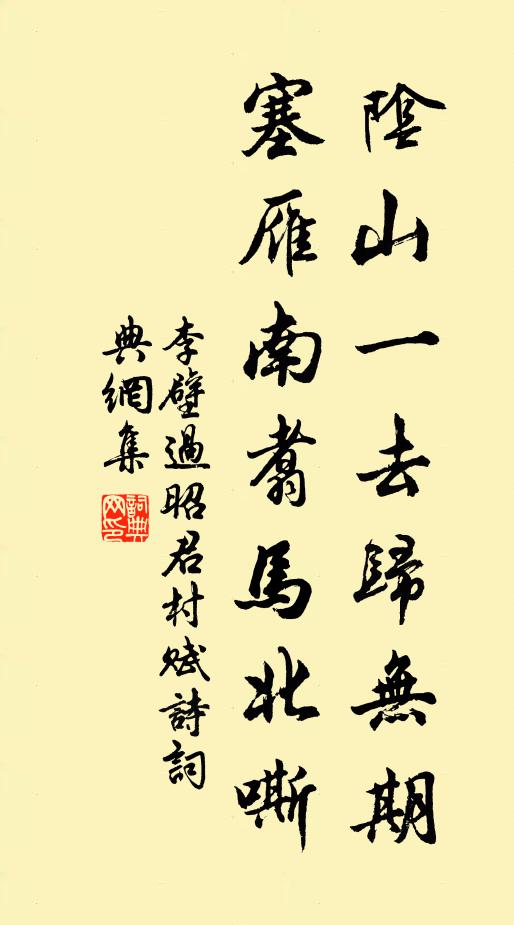 陰山一去歸無期
塞雁南翥馬北嘶
李壁過昭君村賦詩詞
典網集
詞典網印